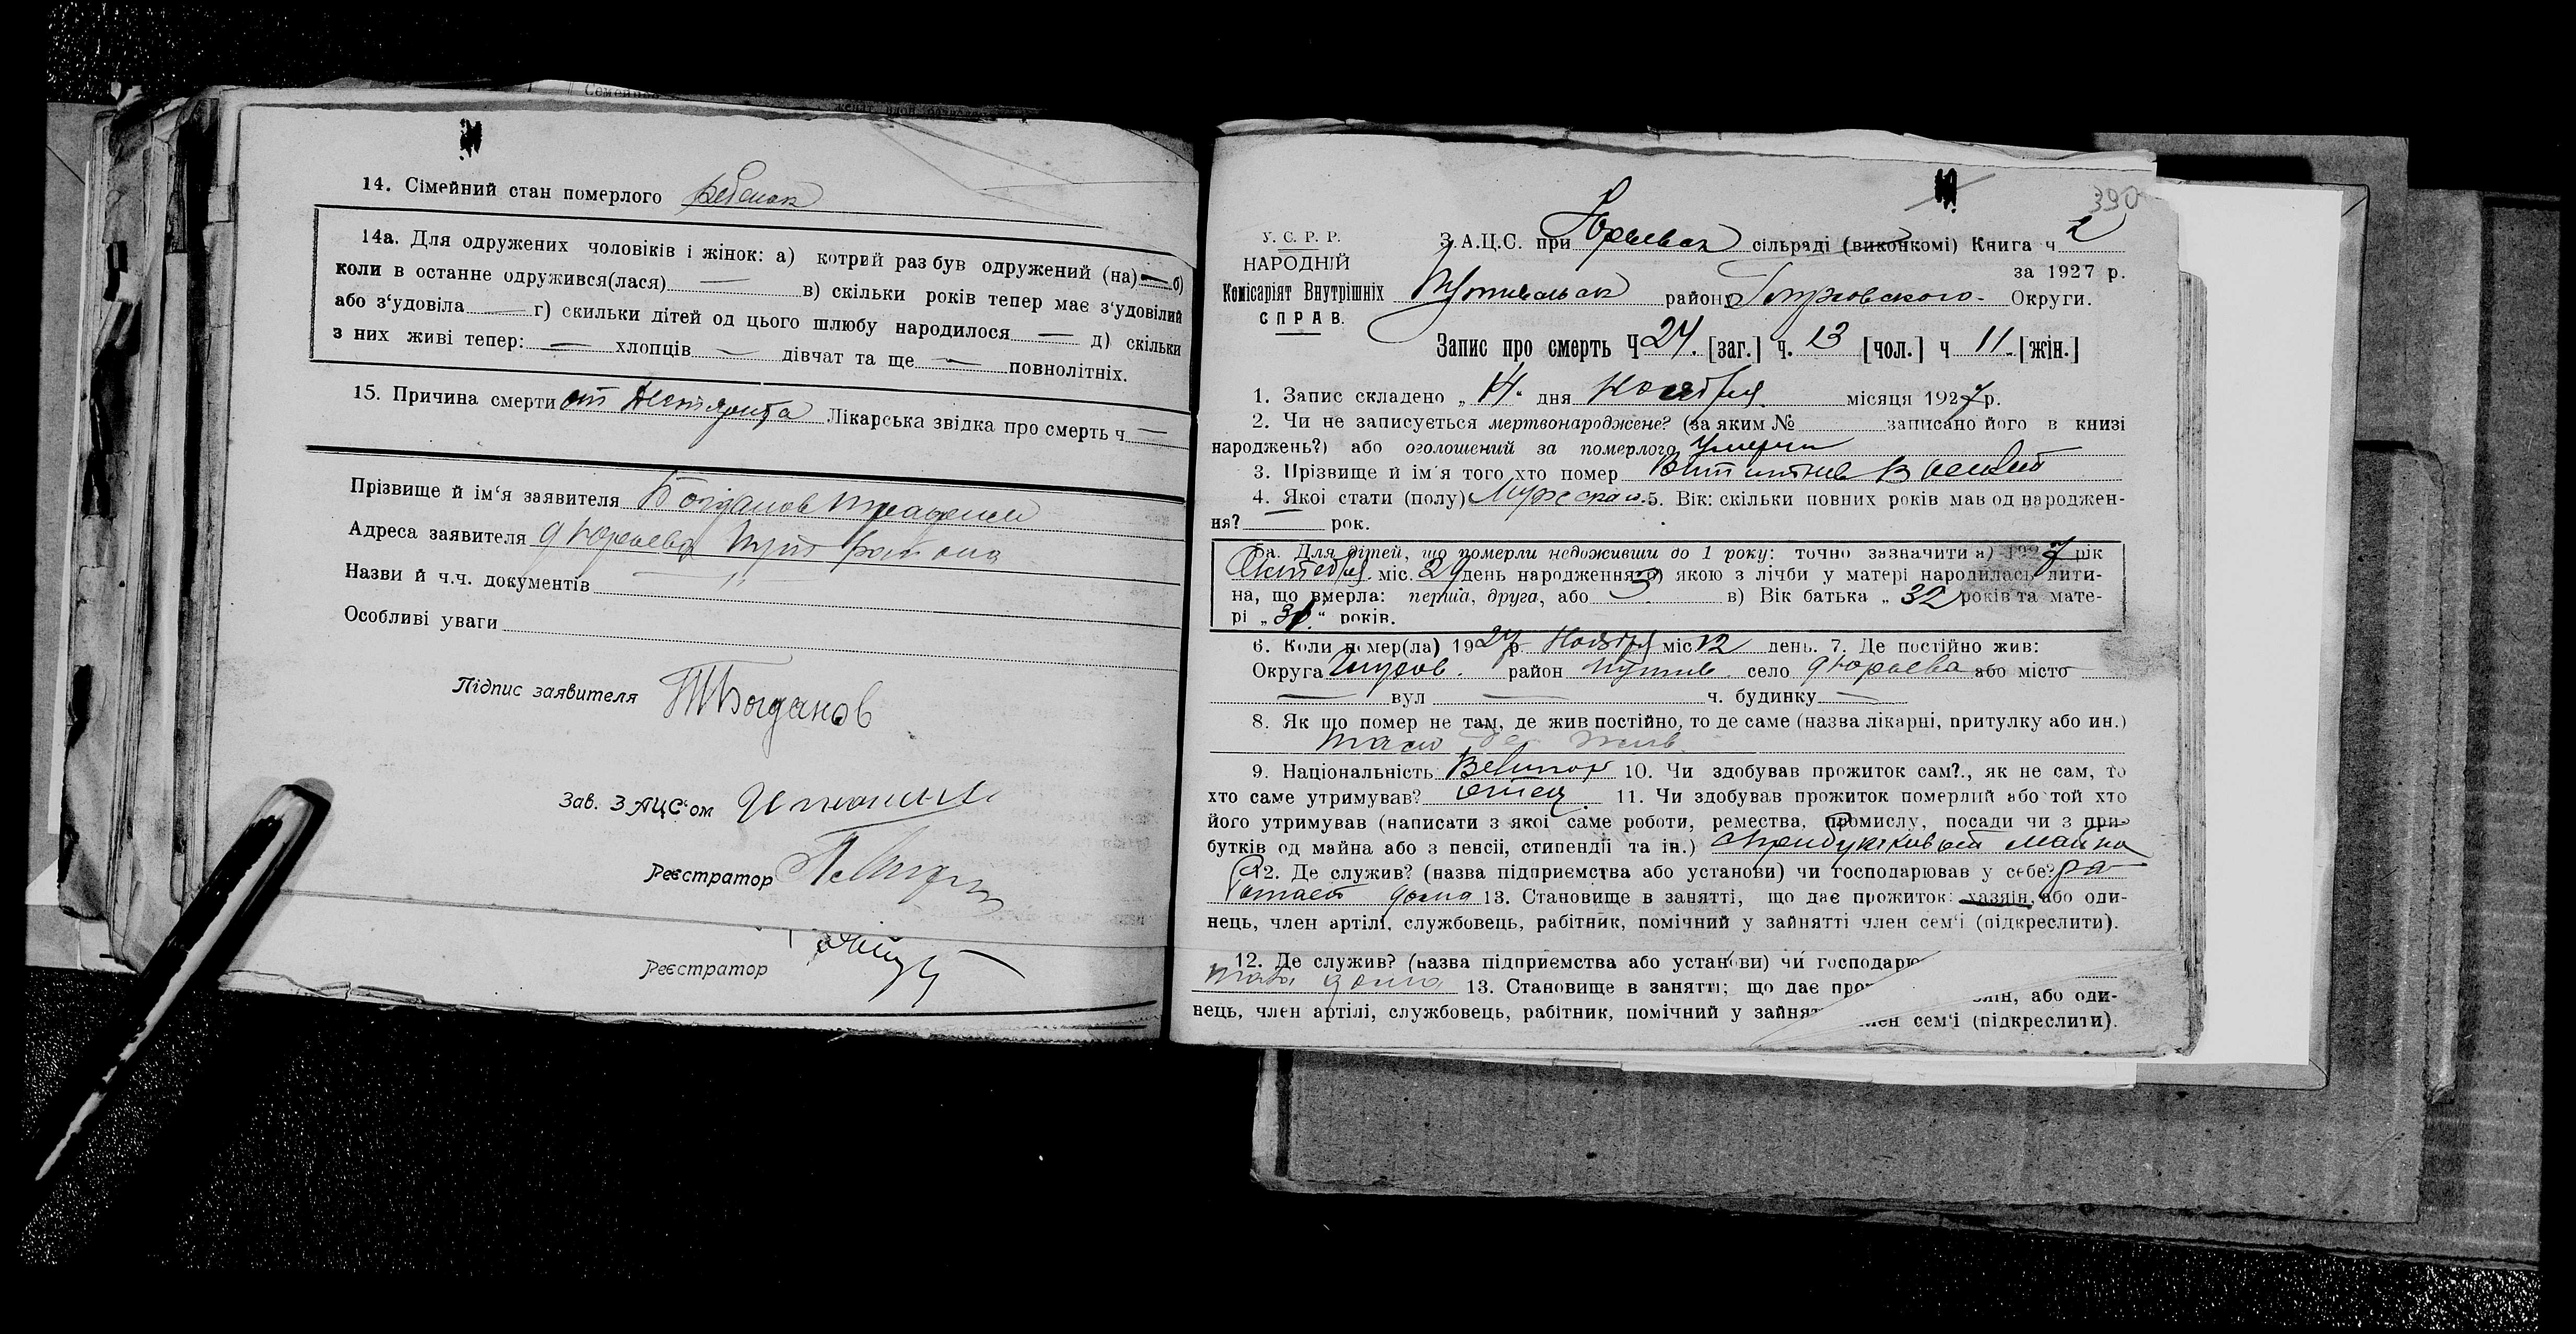 14. Сімейний стан померлого ребенок
14а. Для одружених чоловіків і жінок: а) котрий раз був одружений (на) — б)
коли в останне одружився(лася) — в) скільки років тепер має з‘удовілий
або з‘удовіла — г) скильки дітей од цього шлюбу народилося — д) скільки
з них живі тепер: — хлопців — дівчат та ще — повнолітніх.
15. Причина смерти от Лікарська звідка про смерть ч —
Прізвище й ім‘я заявителя Богданов
Адреса заявителя д Юрьева Пут района
Назви й ч.ч. документів —
Особливі уваги
Підпис заявителя Богданов
Зав. ЗАЦС‘ом
Реєстратор
Реєстратор
390
У. С. Р. Р.
НАРОДНІЙ
Комісаріят Внутрішніх
СПРАВ.
З.А.Ц.С. при Юрьевск сільраді (виконкомі) Книга ч 2
за 1927 р.
Путивльск району Глуховского Округи.
Запис про смерть Ч 24. [заг.] ч. 13 [чол.] ч 11. [жін.]
1. Запис складено „ 14 дня Ноября місяця 1927 р.
2. Чи не записується мертвонароджене? (за яким № записано його в книзі
народжень?) або оголошений за померлого умерш
3. Прізвище й ім‘я того, хто помер
4. Якої стати (полу) Мужской. 5. Вік: скільки повних років мав од народжен-
ня? рок.
5а. Для дітей, що померли недоживши до 1 року: точно зазначити а) 1927 рік
Октября міс. 29 день народження б) якою з лічби у матері народилась дити-
на, що вмерла: перша, друга, або 5 в) Вік батька „ 32 років та мате-
рі „ 31 “ років.
6. Коли помер(ла) 1927 р. Ноября міс 12 день. 7. Де постійно жив:
Округа Глухов. район Путив. село д Юрьева або місто —
— вул — ч. будинку —
8. Як що помер не там, де жив постійно, то де саме (назва лікарні, притулку або ин.)
там де жив.
9. Національність Великор 10. Чи здобував прожиток сам?., як не сам, то
хто саме утримував? отец. 11. Чи здобував прожиток померлий або той хто
його утримував (написати з якої саме роботи, ремества, промислу, посади чи з при-
бутків од майна або з пенсії, стипендії та ін.)
12. Де служив? (назва підприємства або установи) чи господарював у себе? ра
ботает дома 13. Становище в занятті, що дає прожиток: хазяін, або оди-
нець, член артілі, службовець, рабітник, помічний у зайнятті член сем‘і (підкреслити).
12. Де служив? (назва підприємства або установи) чи господарю
дома 13. Становище в занятті; що дає про зяін, або оди-
нець, член артілі, службовець, рабітник, помічний у зайня член сем‘і (підкреслити).